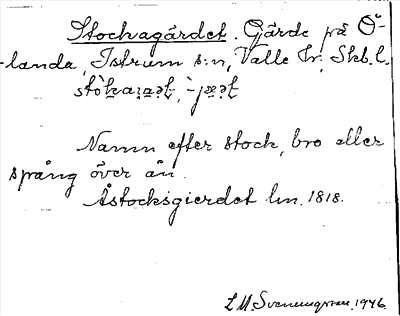 Stockagärdet. Gärde på Ö-
landa, Istrum s:n, Valle hr, Skb. l.
Namn efter stock, bro eller
spång över ån.
Åstocksgierdet lm. 1818.
L M. Svenungsson. 1946.